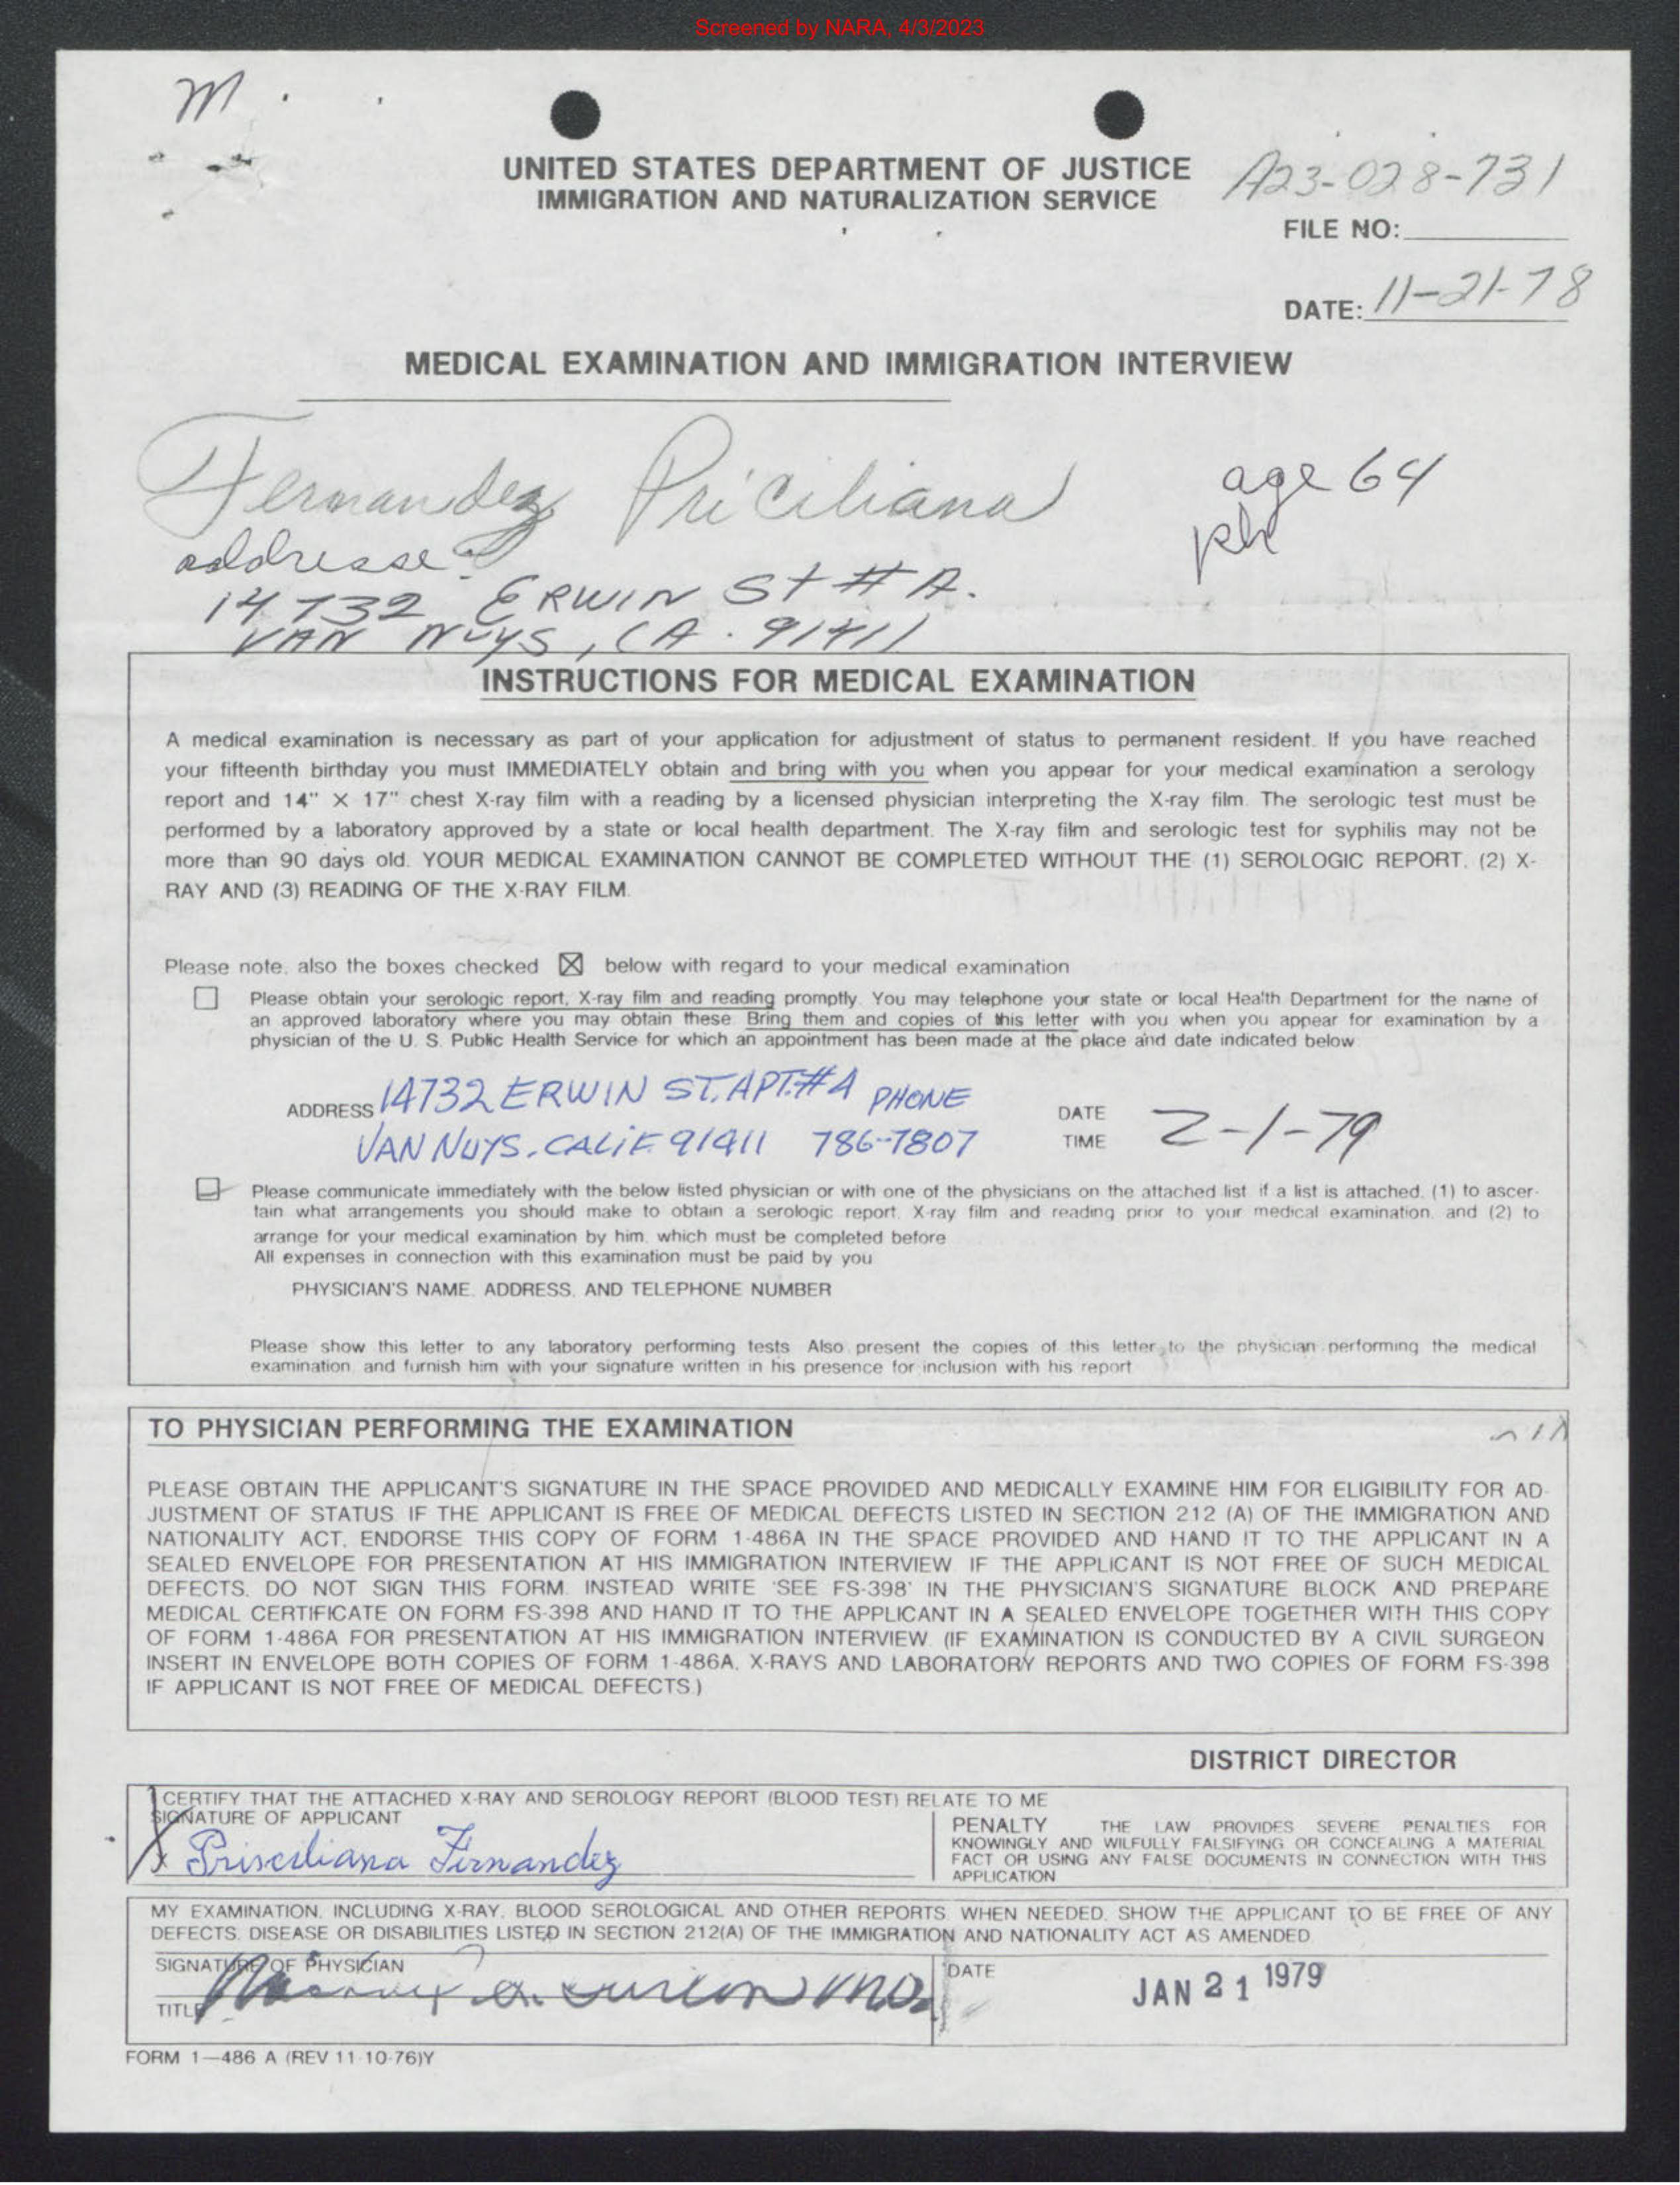 Screened by NARA, 4/3/2023
M
UNITED STATES DEPARTMENT OF JUSTICE
IMMIGRATION AND NATURALIZATION SERVICE
A23-028-731
FILE NO:
DATE: 11-21-78
MEDICAL EXAMINATION AND IMMIGRATION INTERVIEW
Fernandez Priciliana
age 64
ph
addresse
14732 ERWIN St # A.
VAN NUYS, CA. 91411
INSTRUCTIONS FOR MEDICAL EXAMINATION
A medical examination is necessary as part of your application for adjustment of status to permanent resident. If you have reached
your fifteenth birthday you must IMMEDIATELY obtain and bring with you when you appear for your medical examination a serology
report and 14" X 17" chest X-ray film with a reading by a licensed physician interpreting the X-ray film. The serologic test must be
performed by a laboratory approved by a state or local health department. The X-ray film and serologic test for syphilis may not be
more than 90 days old. YOUR MEDICAL EXAMINATION CANNOT BE COMPLETED WITHOUT THE (1) SEROLOGIC REPORT, (2) X-
RAY AND (3) READING OF THE X-RAY FILM.
Please note, also the boxes checked ☒ below with regard to your medical examination
☐ Please obtain your serologic report, X-ray film and reading promptly. You may telephone your state or local Health Department for the name of
an approved laboratory where you may obtain these. Bring them and copies of this letter with you when you appear for examination by a
physician of the U. S. Public Health Service for which an appointment has been made at the place and date indicated below
ADDRESS 14732 ERWIN ST. APT.#A PHONE
VAN NUYS. CALIF. 91411 786-7807
DATE
TIME
2-1-79
☐ Please communicate immediately with the below listed physician or with one of the physicians on the attached list if a list is attached, (1) to ascer-
tain what arrangements you should make to obtain a serologic report, X-ray film and reading prior to your medical examination, and (2) to
arrange for your medical examination by him, which must be completed before
All expenses in connection with this examination must be paid by you
PHYSICIAN'S NAME, ADDRESS, AND TELEPHONE NUMBER
Please show this letter to any laboratory performing tests. Also present the copies of this letter to the physician performing the medical
examination, and furnish him with your signature written in his presence for inclusion with his report
TO PHYSICIAN PERFORMING THE EXAMINATION
PLEASE OBTAIN THE APPLICANT'S SIGNATURE IN THE SPACE PROVIDED AND MEDICALLY EXAMINE HIM FOR ELIGIBILITY FOR AD-
JUSTMENT OF STATUS. IF THE APPLICANT IS FREE OF MEDICAL DEFECTS LISTED IN SECTION 212 (A) OF THE IMMIGRATION AND
NATIONALITY ACT, ENDORSE THIS COPY OF FORM 1-486A IN THE SPACE PROVIDED AND HAND IT TO THE APPLICANT IN A
SEALED ENVELOPE FOR PRESENTATION AT HIS IMMIGRATION INTERVIEW. IF THE APPLICANT IS NOT FREE OF SUCH MEDICAL
DEFECTS, DO NOT SIGN THIS FORM. INSTEAD WRITE 'SEE FS-398' IN THE PHYSICIAN'S SIGNATURE BLOCK AND PREPARE
MEDICAL CERTIFICATE ON FORM FS-398 AND HAND IT TO THE APPLICANT IN A SEALED ENVELOPE TOGETHER WITH THIS COPY
OF FORM 1-486A FOR PRESENTATION AT HIS IMMIGRATION INTERVIEW. (IF EXAMINATION IS CONDUCTED BY A CIVIL SURGEON
INSERT IN ENVELOPE BOTH COPIES OF FORM 1-486A, X-RAYS AND LABORATORY REPORTS AND TWO COPIES OF FORM FS-398
IF APPLICANT IS NOT FREE OF MEDICAL DEFECTS.)
DISTRICT DIRECTOR
I CERTIFY THAT THE ATTACHED X-RAY AND SEROLOGY REPORT (BLOOD TEST) RELATE TO ME
SIGNATURE OF APPLICANT
X Prisciliana Fernandez
PENALTY THE LAW PROVIDES SEVERE PENALTIES FOR
KNOWINGLY AND WILFULLY FALSIFYING OR CONCEALING A MATERIAL
FACT OR USING ANY FALSE DOCUMENTS IN CONNECTION WITH THIS
APPLICATION
MY EXAMINATION, INCLUDING X-RAY, BLOOD SEROLOGICAL AND OTHER REPORTS, WHEN NEEDED, SHOW THE APPLICANT TO BE FREE OF ANY
DEFECTS, DISEASE OR DISABILITIES LISTED IN SECTION 212(A) OF THE IMMIGRATION AND NATIONALITY ACT AS AMENDED
SIGNATURE OF PHYSICIAN
TITLE
MD.
DATE
JAN 21 1979
FORM 1—486 A (REV 11-10-76)Y